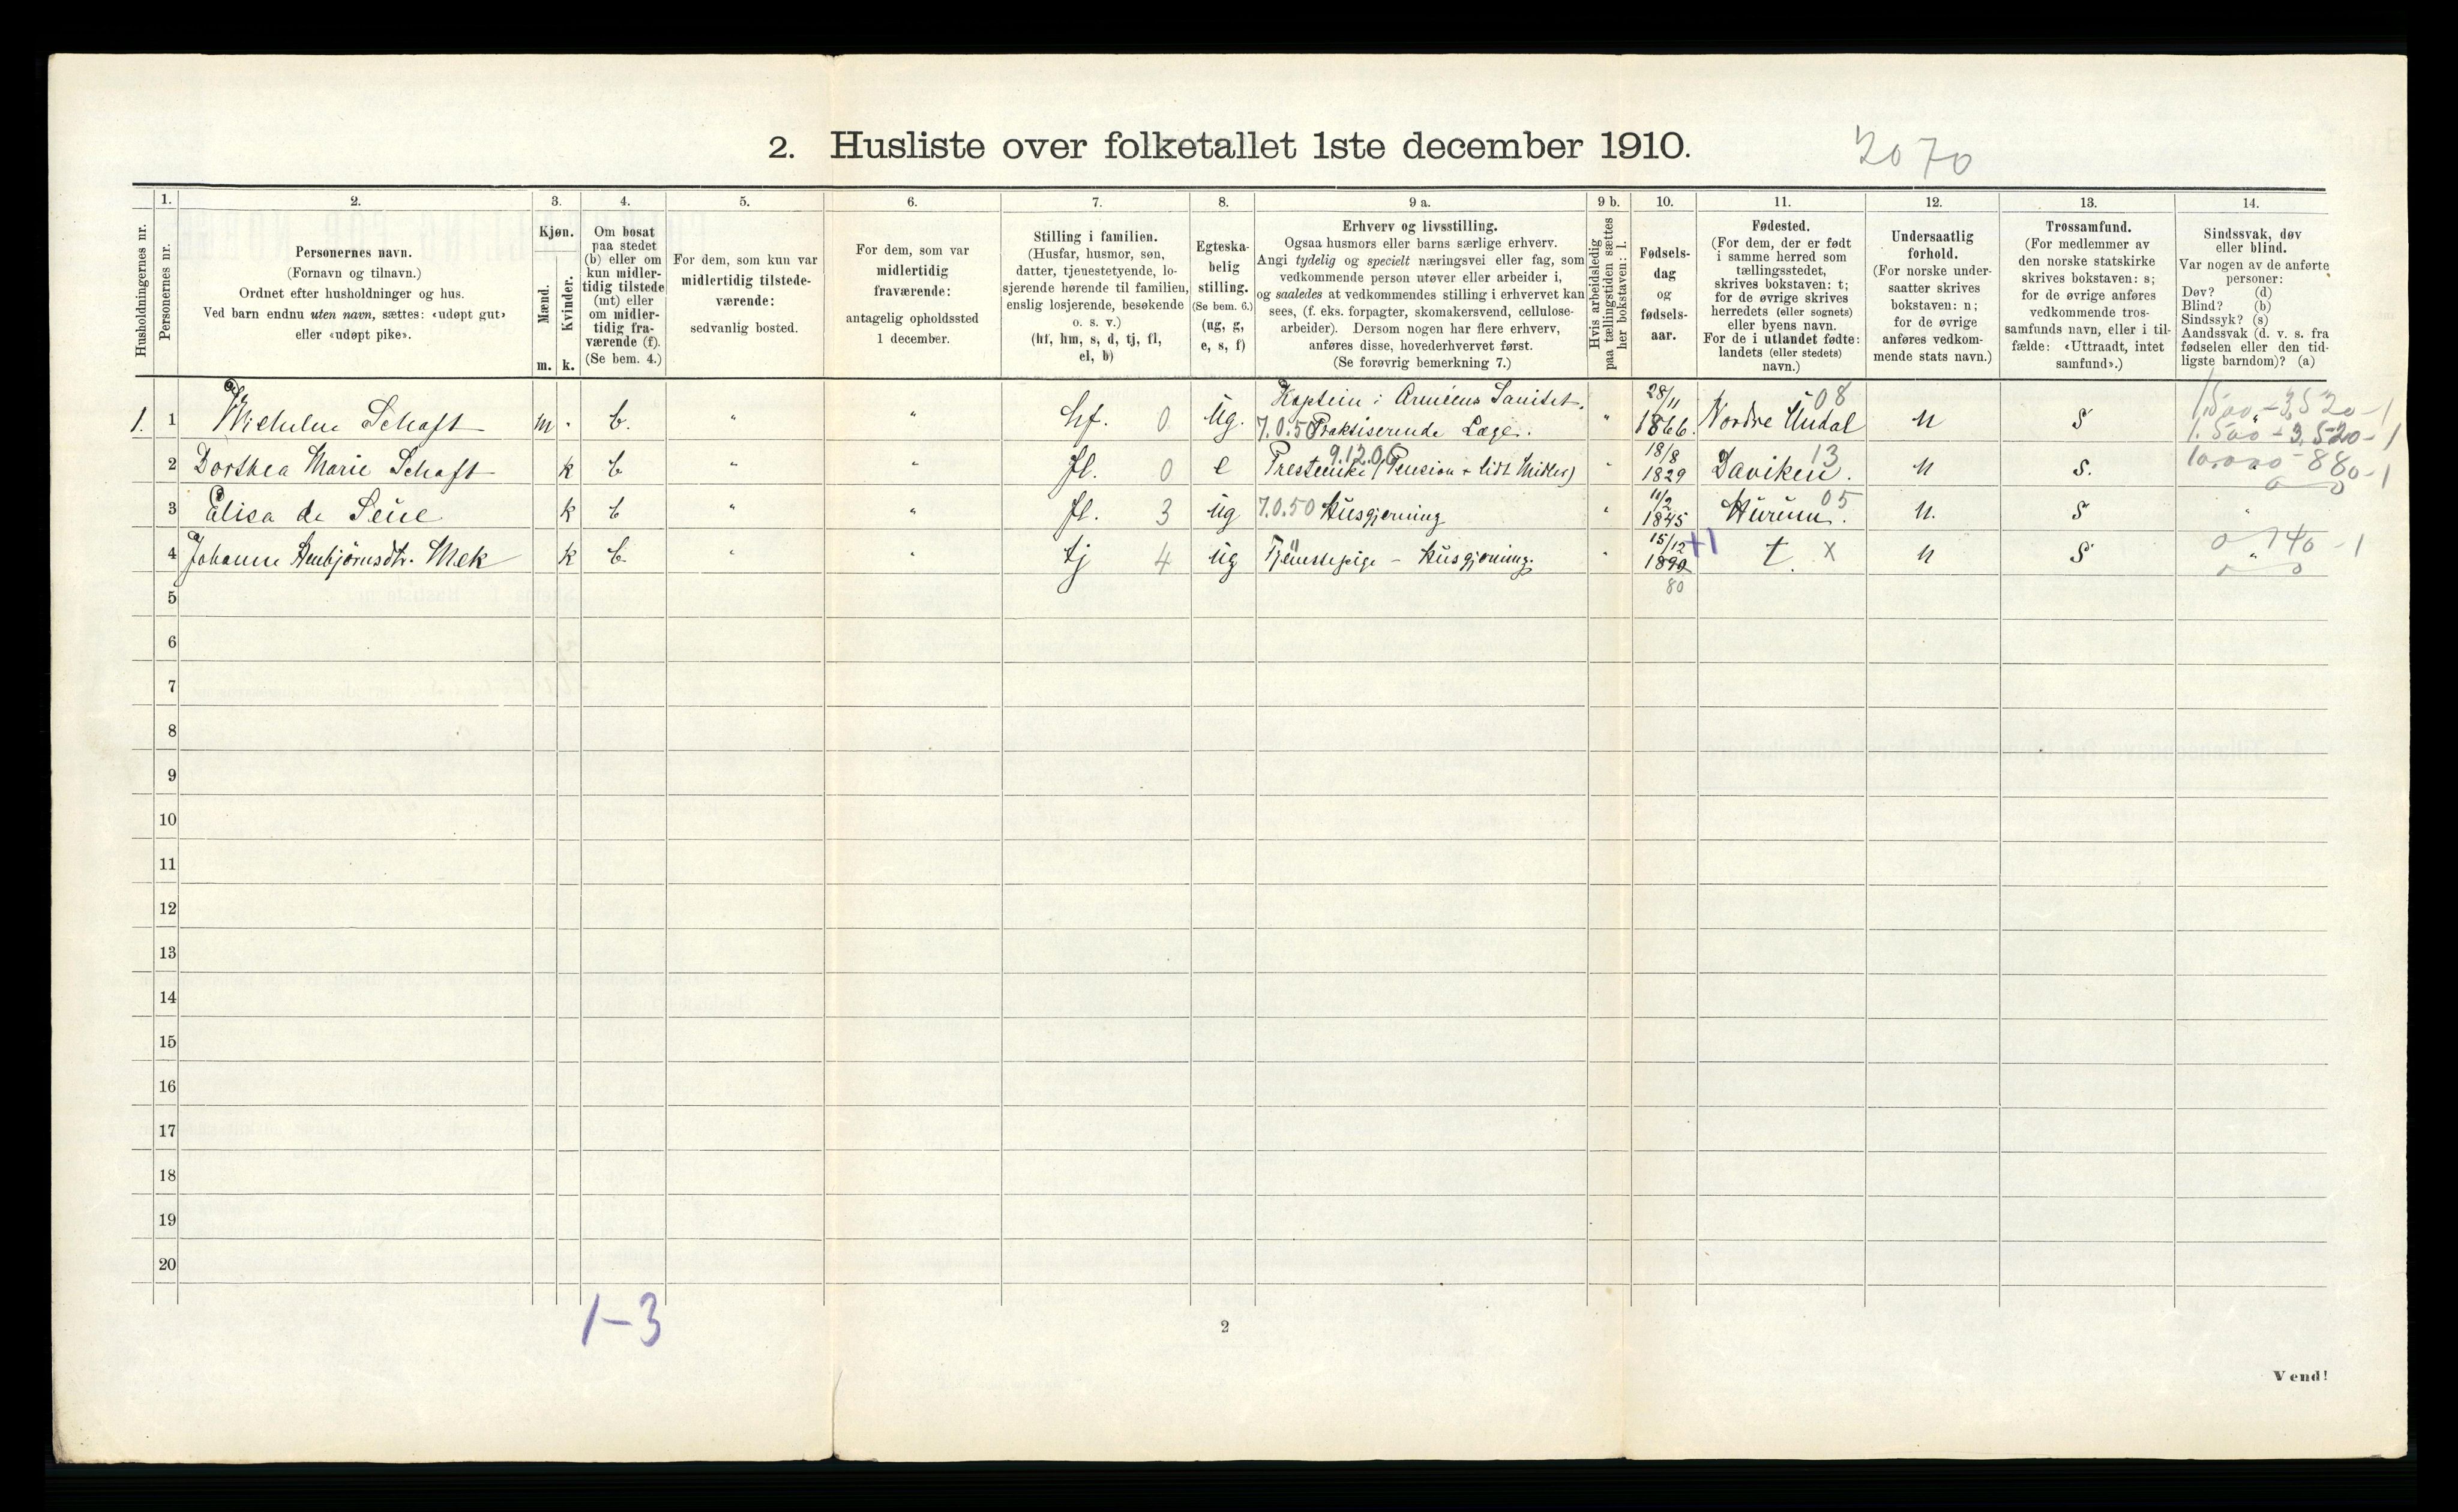 2. Husliste over folketallet 1ste december 1910.
2070
Husholdningernes nr.
1.
Personernes nr.
2.
Personernes navn.
(Fornavn og tilnavn.)
Ordnet efter husholdninger og hus.
Ved barn endnu uten navn, sættes: «udøpt gut»
eller «udøpt pike».
3.
Kjøn.
Mænd.
Kvinder.
m. k.
4.
Om bosat
paa stedet
(b) eller om
kun midler-
tidig tilstede
(mt) eller
om midler-
tidig fra-
værende (f).
(Se bem. 4.)
5.
For dem, som kun var
midlertidig tilstede-
værende:
sedvanlig bosted.
6.
For dem, som var
midlertidig
fraværende:
antagelig opholdssted
1 december.
7.
Stilling i familien.
(Husfar, husmor, søn,
datter, tjenestetyende, lo-
sjerende hørende til familien,
enslig losjerende, besøkende
o. s. v.)
(hf, hm, s, d, tj, fl,
el, b)
8.
Egteska-
belig
stilling.
(Se bem. 6.)
(ug, g,
e, s, f)
9 a.
Erhverv og livsstilling.
Ogsaa husmors eller barns særlige erhverv.
Angi tydelig og specielt næringsvei eller fag, som
vedkommende person utøver eller arbeider i,
og saaledes at vedkommendes stilling i erhvervet kan
sees, (f. eks. forpagter, skomakersvend, cellulose-
arbeider). Dersom nogen har flere erhverv,
anføres disse, hovederhvervet først.
(Se forøvrig bemerkning 7.)
9 b.
Hvis arbeidsledig
paa tællingstiden sættes
her bokstaven: l.
10.
Fødsels-
dag
og
fødsels-
aar.
11.
Fødested.
(For dem, der er født
i samme herred som
tællingsstedet,
skrives bokstaven: t;
for de øvrige skrives
herredets (eller sognets)
eller byens navn.
For de i utlandet fødte:
landets (eller stedets)
navn.)
12.
Undersaatlig
forhold.
(For norske under-
saatter skrives
bokstaven: n;
for de øvrige
anføres vedkom-
mende stats navn.)
13.
Trossamfund.
(For medlemmer av
den norske statskirke
skrives bokstaven: s;
for de øvrige anføres
vedkommende tros-
samfunds navn, eller i til-
fælde: «Uttraadt, intet
samfund».)
14.
Sindssvak, døv
eller blind.
Var nogen av de anførte
personer:
Døv? (d)
Blind? (b)
Sindssyk? (s)
Aandssvak (d. v. s. fra
fødselen eller den tid-
ligste barndom)? (a)
1. 1 Wilhelm Schaft m b. " " hf. 0 ug. Kaptein i Armeens Sanitet. 7.0.50 Praktiserende Læge. " 28/11 1866. Nordre Undal 08 n S 1.500 - 3.520 - 1
1.500 - 3.520 - 1
2 Dorthea Marie Schaft k b " " fl. 0 e 9.12.06 Presteenke (Pension + lidt Midler) " 18/8 1829 Daviken. 13 n S. 10.000 - 880 - 1
3 Elisa de Seue k b " " fl. 3 ug 7.0.50 Husgjerning " 11/2 1845 Hurum. 05 n. S "
4 Johanne Stenbjørnsdtr. Mek k b " " tj 4 ug Tjenestepige - Husgjerning. " 15/12 1890 +1 t. x n S 0 140 - 1
80
5
6
7
8
9
10
11
12
13
14
15
16
17
18
19
20
1-3
2
Vend!